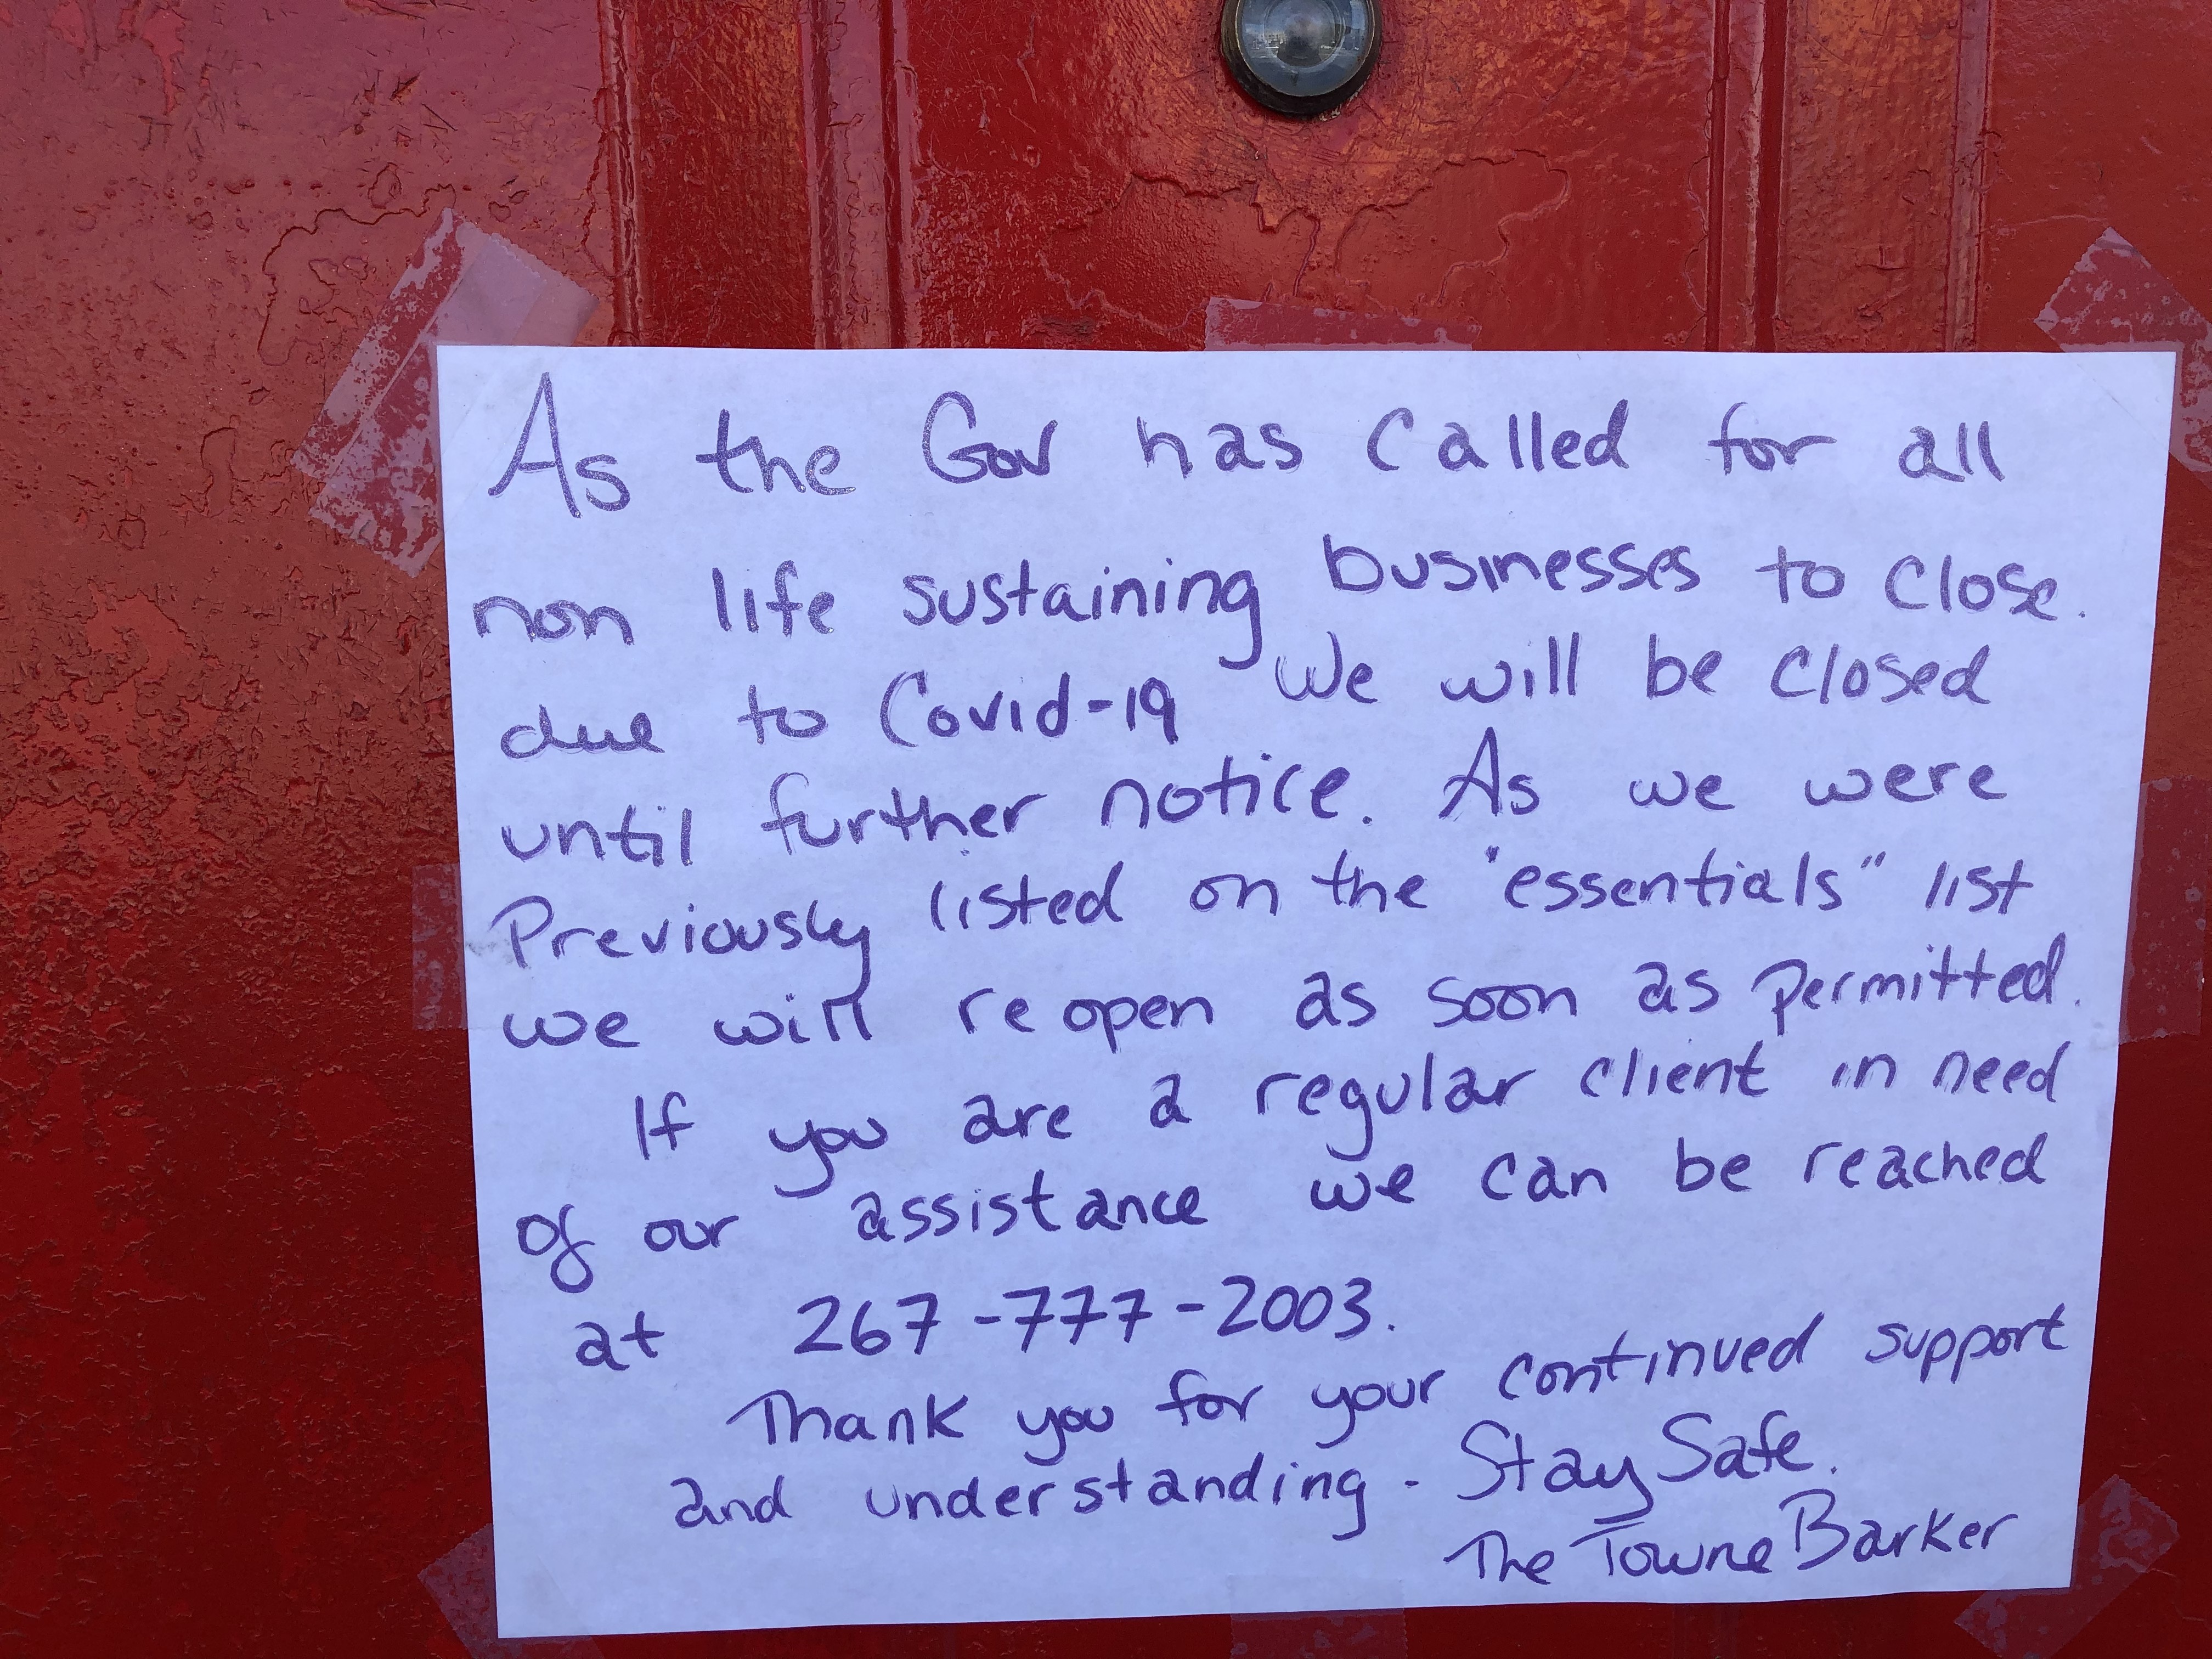 As the Gov has called for all
non life sustaining businesses to close.
due to Covid-19 We will be closed
until further notice. As we were
Previously listed on the "essentials" list
we will re open as soon as permitted.
If you are a regular client in need
of our assistance we can be reached
at 267-777-2003.
Thank you for your continued support
and understanding - Stay Safe.
The Towne Barker